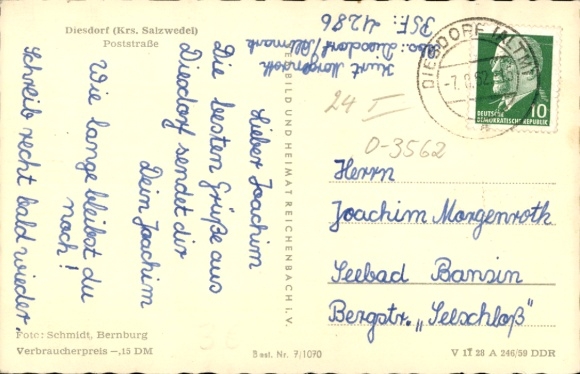 Diesdorf (Krs. Salzwedel)
Poststraße
Lieber Joachim
Die besten Grüße aus
Diesdorf sendet dir
Dein Joachim
Wie lange bleibst du
noch!
Schreib recht bald wieder.
Foto: Schmidt, Bernburg
Verbraucherpreis –,15 DM
BILD UND HEIMAT REICHENBACH I. V.
Best. Nr. 7/1070
Kurt Morgenroth
Diesdorf/Altmark
4286
DIESDORF (ALTM)
DEUTSCHE
DEMOKRATISCHE REPUBLIK
10
24 I
0-3562
Herrn
Joachim Morgenroth
Seebad Bansin
Bergstr. „Selschloß"
V 11 28 A 246/59 DDR